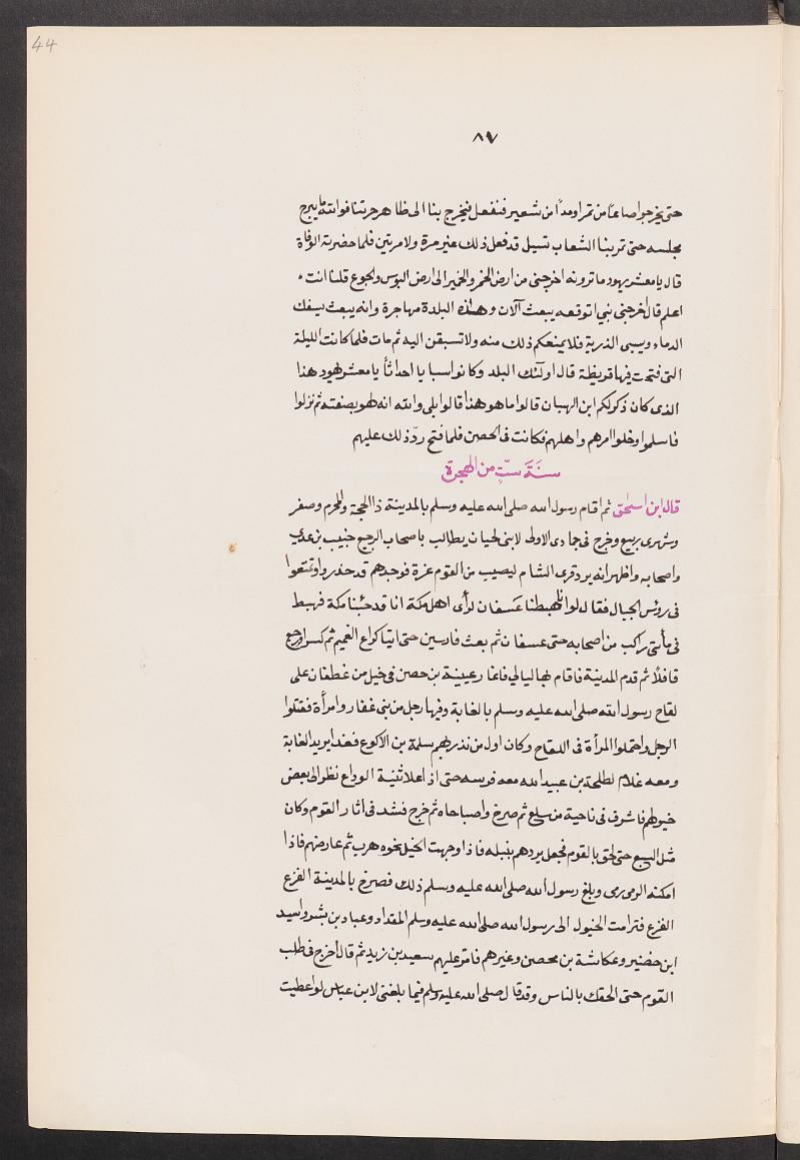 44
٨٧
حتى يخرجوا صاعا من تمر او مدا من شعير فنفعل فيخرج بنا الى ظاهر حرتنا فوالله ما يبرح
مجلسه حتى تمر بنا الشعاب تسيل قد فعل ذلك غير مرة ولا مرتين فلما حضرته الوفاة
قال يا معشر يهود ما ترونه اخرجنى من ارض الخمر والخمير الى ارض البوس والجوع قلنا انت
اعلم قال اخرجنى نبي اتوقعه يبعث آلان وهذه البلدة مهاجرة وانه يبعث بسفك
الدماء ويسبى الذرية فلا يمنعكم ذلك منه ولا تسبقن اليه ثم مات فلما كانت الليلة
التى فتحت فيها قريظة قال اولئك البلد وكانوا سبايا احداثا يا معشر يهود هذا
الذى كان ذكر لكم ابن الهيبان قالوا ما هو هذا قالوا بلى والله انه لهو بصفته ثم نزلوا
فاسلموا وخلوا امرهم واهلهم فكانت فى الحصن فلما فتح ردّ ذلك عليهم
سنة ستٍ من الهجرة
قال ابن اسحق ثم اقام رسول الله صلى الله عليه وسلم بالمدينة ذا الحجة والمحرم وصفر
وشهرى ربيع وخرج فى جمادى الاولى لابنى لحيان يطالب باصحاب الرجيع خبيب بن عدى
واصحابه واظهر انه يرد قرى الشام ليصيب من القوم غرة فوجدهم قد حذروا وتمنعوا
فى روس الجبال فقال لو انا هبطنا عسفان لرأى اهل مكة انا قد جئنا مكة فهبط
فى مأتى راكب من اصحابه حتى عسفان ثم بعث فارسين حتى اتيا كراع الغميم ثم كسرا ورجع
قافلا ثم قدم المدينة فاقام بها ليالي فاغار عيينة بن حصن فى خيل من غطفان على
لقاح رسول الله صلى الله عليه وسلم بالغابة وفيها رجل من بنى غفار وامرأة فقتلوا
الرجل واحتملوا المرأة فى اللقاح وكان اول من نذر بهم سلمة بن الاكوع فغدا يريد الغابة
ومعه غلام لطلحة بن عبيد الله معه فرسه حتى اذا علا ثنية الوداع نظر الى بعض
خيولهم فاشرف فى ناحية من سلع ثم صرخ واصباحاه ثم خرج فشد فى اثار القوم وكان
مثل السبع حتى لحق بالقوم فجعل يردهم بنبله فاذا وجهت الخيل نحوه هرب ثم عارضهم فاذا
امكنه الرمى رمى وبلغ رسول الله صلى الله عليه وسلم ذلك فصرخ بالمدينة الفزع
الفزع فترامت الخيول الى رسول الله صلى الله عليه وسلم المقداد وعباد بن بشر واسيد
ابن حضير وعكاشة بن محصن وغيرهم فامر عليهم سعيد بن زيد ثم قال اخرج فى طلب
القوم حتى الحقك بالناس وقد قال صلى الله عليه وسلم فيما بلغنى لابن عباس لو اعطيت